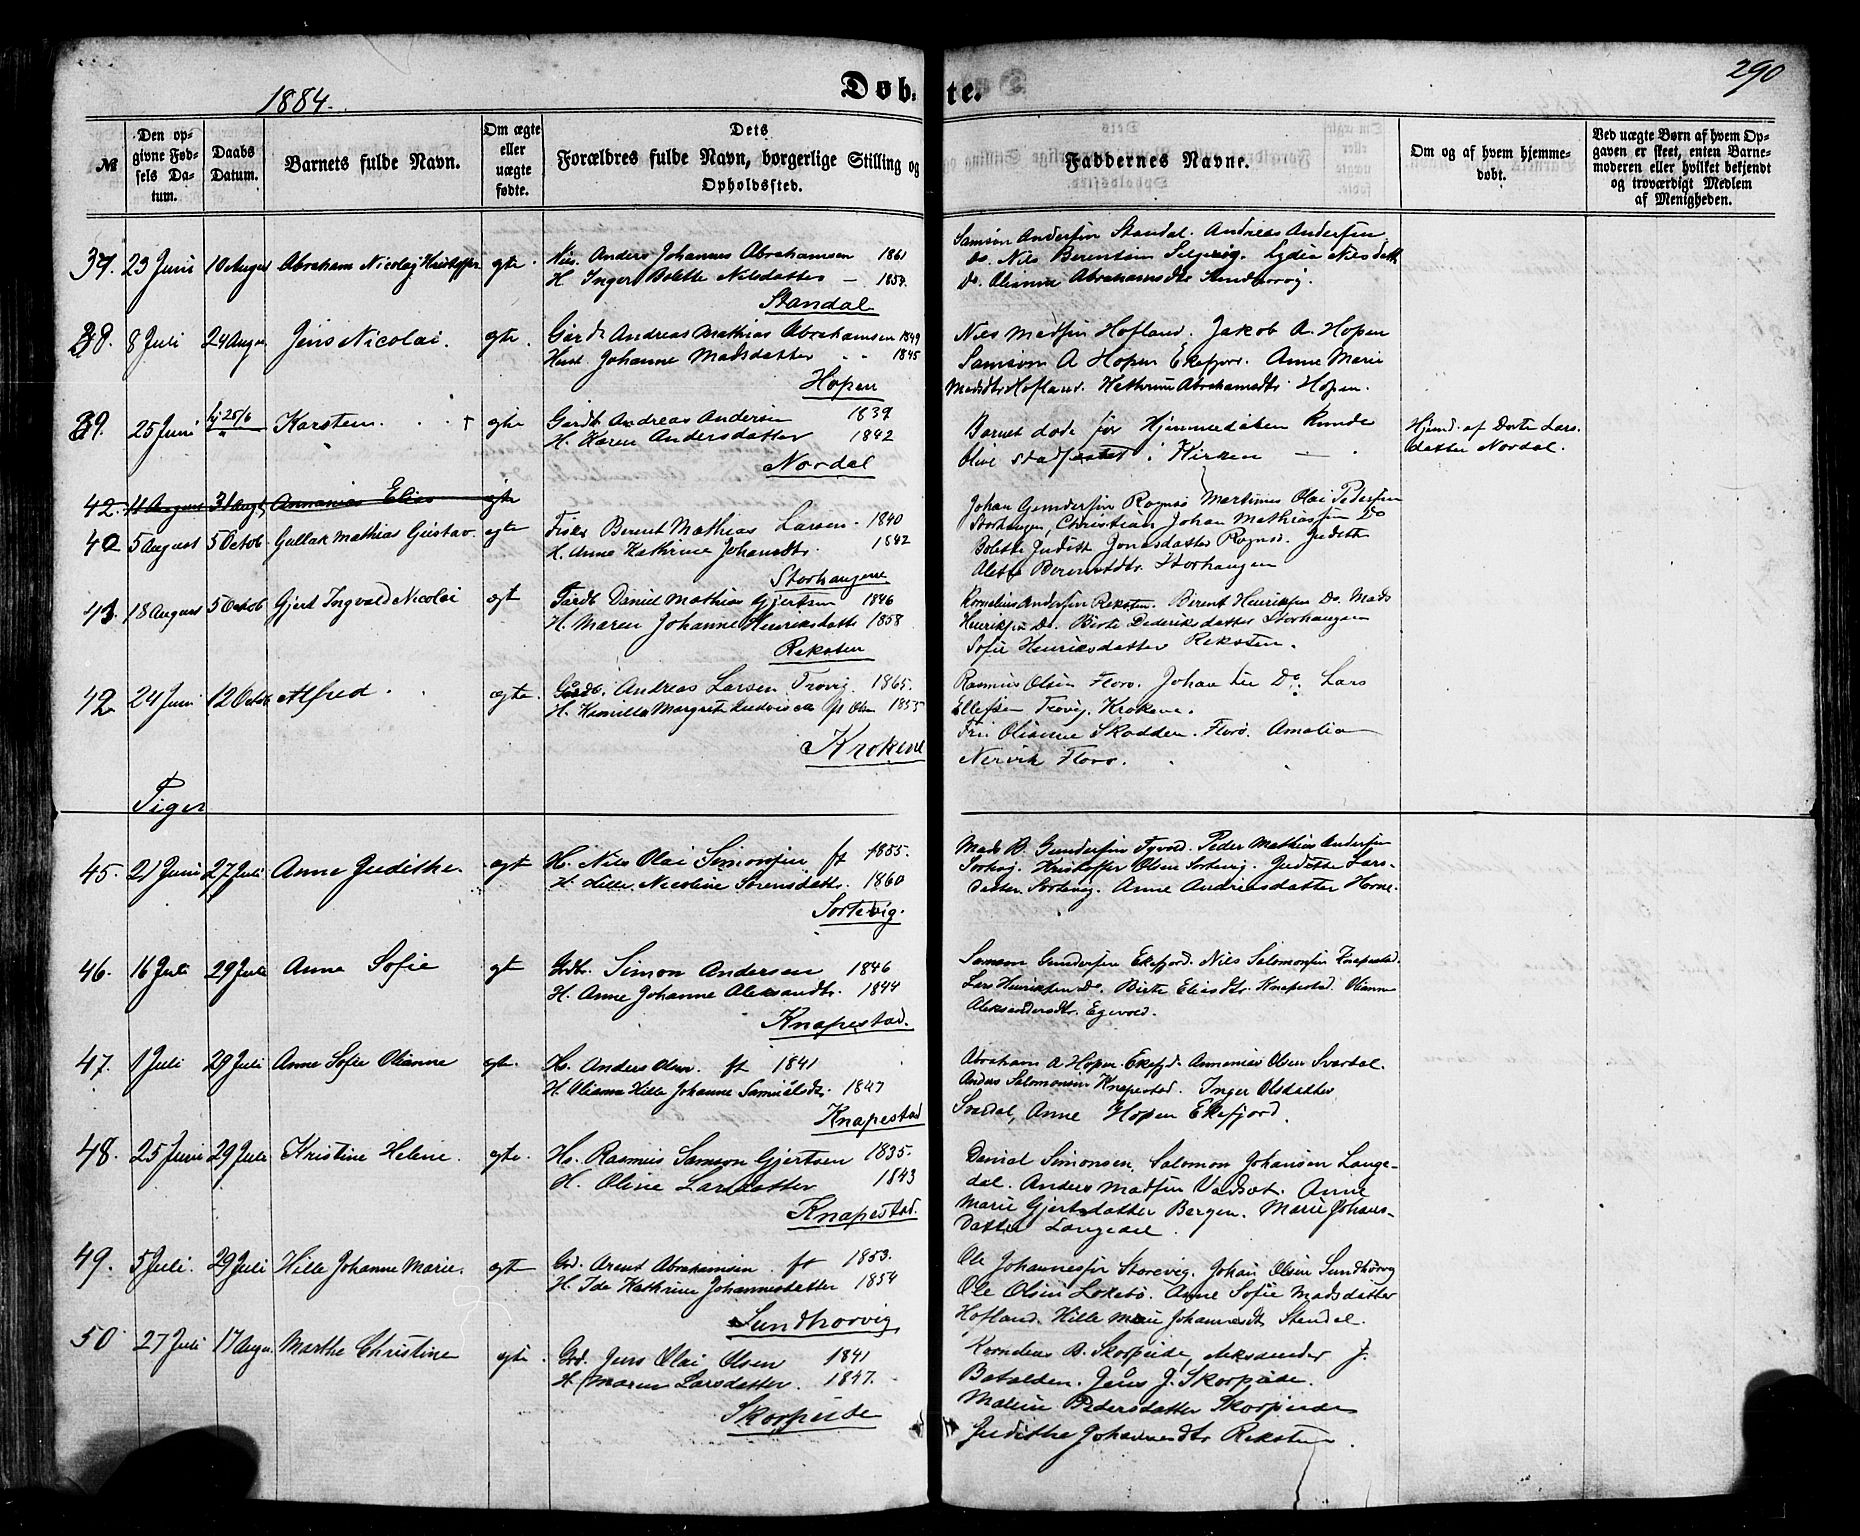 1884.
Døbte.
290
№
Den opgivne Fødsels Datum.
Daabs Datum.
Barnets fulde Navn.
Om ægte eller uægte fødte.
Dets Forældres fulde Navn, borgerlige Stilling og Opholdssted.
Faddernes Navne.
Om og af hvem hjemmedøbt.
Ved uægte Børn af hvem Opgaven er skeet, enten Barnemoderen eller hvilket bekjendt og troværdigt Medlem af Menigheden.
37. 23 Juni 10 August Abraham Nicolaj Kristoffer ægte. Anders Johannes Abrahamsen 1861
H Inger Bolette Nilsdatter 1858
Standal
Samson Andersen Standal. Andreas Andersen
Do. Nils Berentsen. Lydia Nilsdatt
Do. Olianna Abrahamsdtr
38. 8 Juli 24 Augu Jens Nicolai. ægte. Gårdb Andreas Mathias Abrahamsen 1849
Hust. Johanne Madsdatter 1845
Hopen
Nils Madsen Hofland. Jakob A. Hopen
Samson A Hopen Ekefjor. Anne Marie
Madsdtr Hofland. Kathrine Abrahamsdtr. Hopen.
39. 25 Juni hj 25/6 Karsten. † ægte Gårdb Andreas Andersen 1839
H. Karen Andersdatter 1842
Nordal
Barnet døde før Hjemmedåben kunde
blive stadfæstet i Kirken
Hjemd. af Dorte Lars
datter Nordal.
42. 11 August 31 Augt Annanias Elias ægte
40 5 August 5 Octob Gullak Mathias Gustav. ægte Fisker Berent Mathias Larsen. 1840
H. Anne Kathrine Johansdtr. 1842
Storhaugene
Johan Gundersen Rognsø Martinus Olai Pedersen
Storhaugen, Christian Johan Mathiassen Do
Bolette Judith Jonasdatter Rognsø. Judith
Alette Berentsdtr. Storhaugen
43 18 August 5 Octob Gjert Ingvald Nicolai ægt Gårdb Daniel Mathias Gjertsen 1846
H. Maren Johanne Henriksdatter 1858
Reksten
Kornelius Andersen Reksten. Berent Henriksen Do. Mads
Henriksen Do. Birte Dideriksdatter Storhaugen
Sofie Henriksdatter Reksten.
42 24 Juni 12 Octob Alfred ægte. Gårdb. Andreas Larsen Trovig. 1865.
H. Kamilla Margrete 1855
Krokene
Rasmus Olsen Florø. Johan Lie Do. Lars
Ellefsen Trovig. Krokene.
Frk Olianne Skadden. Florø. Amalia
Nervik Florø.
Tiger
45. 21 Juni 27 Juli Anne Judithe. ægt Hs. Nils Olai Simonsen ft 1855.
H. Hille Nicoline Sørensdatr. 1860
Sortevig.
Mads B. Gundersen. Peder Mathias Andersen
Kristoffer Olsen Sortevig. Judithe Lars-
datter Sortevig. Anne Andreasdatter Horne.
46. 16 Juli 29 Juli Anne Sofie ægt Grdbr. Simon Andersen 1846
H. Anne Johanne Aleksandtr. 1844
Knapestad.
Samson Gundersen Ekefjord. Nils Salomonsen Knapestad.
Lars Henriksen Do. Birte Eliasdtr. Knapestad. Olianne
Aleksandersdtr. Egevold.
47. 1 Juli 29 Juli Anne Sofie Olianne ægt. Hs. Anders Olsen. ft 1841
H. Olianna Hille Johanne Samuelsdtr 1847
Knapestad
Abraham A Hopen. Ekefjd. Annanias Olsen Svardal.
Anders Salomonsen Knapestad. Inger Olsdatter
Svardal, Anne Hopen Ekefjord.
48. 25 Juni 29 Juli Kristine Helene. ægte. Hs. Rasmus Samson Gjertsen 1835.
H. Oline Larsdatter 1843
Knapestad
Daniel Simonsen, Salomon Johansen Lange-
dal. Anders Madsen Vadsøt. Anne
Marie Gjertsdatter Bergen. Marie Johans-
datter Langedal.
49. 5 Juli. 29 Juli Hille Johanne Marie. ægte Grd. Arent Abrahamsen. ft 1853.
H. Ida Kathrine Johannesdatter 1854
Sundhorvig
Ole Johannessen Storevig. Johan Olsen Sundhorvig
Ole Olsen Lokebø. Anne Sofie Madsdatter
Hofland. Hille Marie Johannesdt Standal.
50 27 Juli 17 Augu. Marthe Christine ægte. Grd. Jens Olai Olsen 1841
H. Maren Larsdatter. 1847.
Skorpeide
Kornelius B. Skorpeide, Aleksander J.
Batalden. Jens J. Skorpeide.
Maline Pedersdatter Skorpeide
Judithe Johannesdtr Reksten.